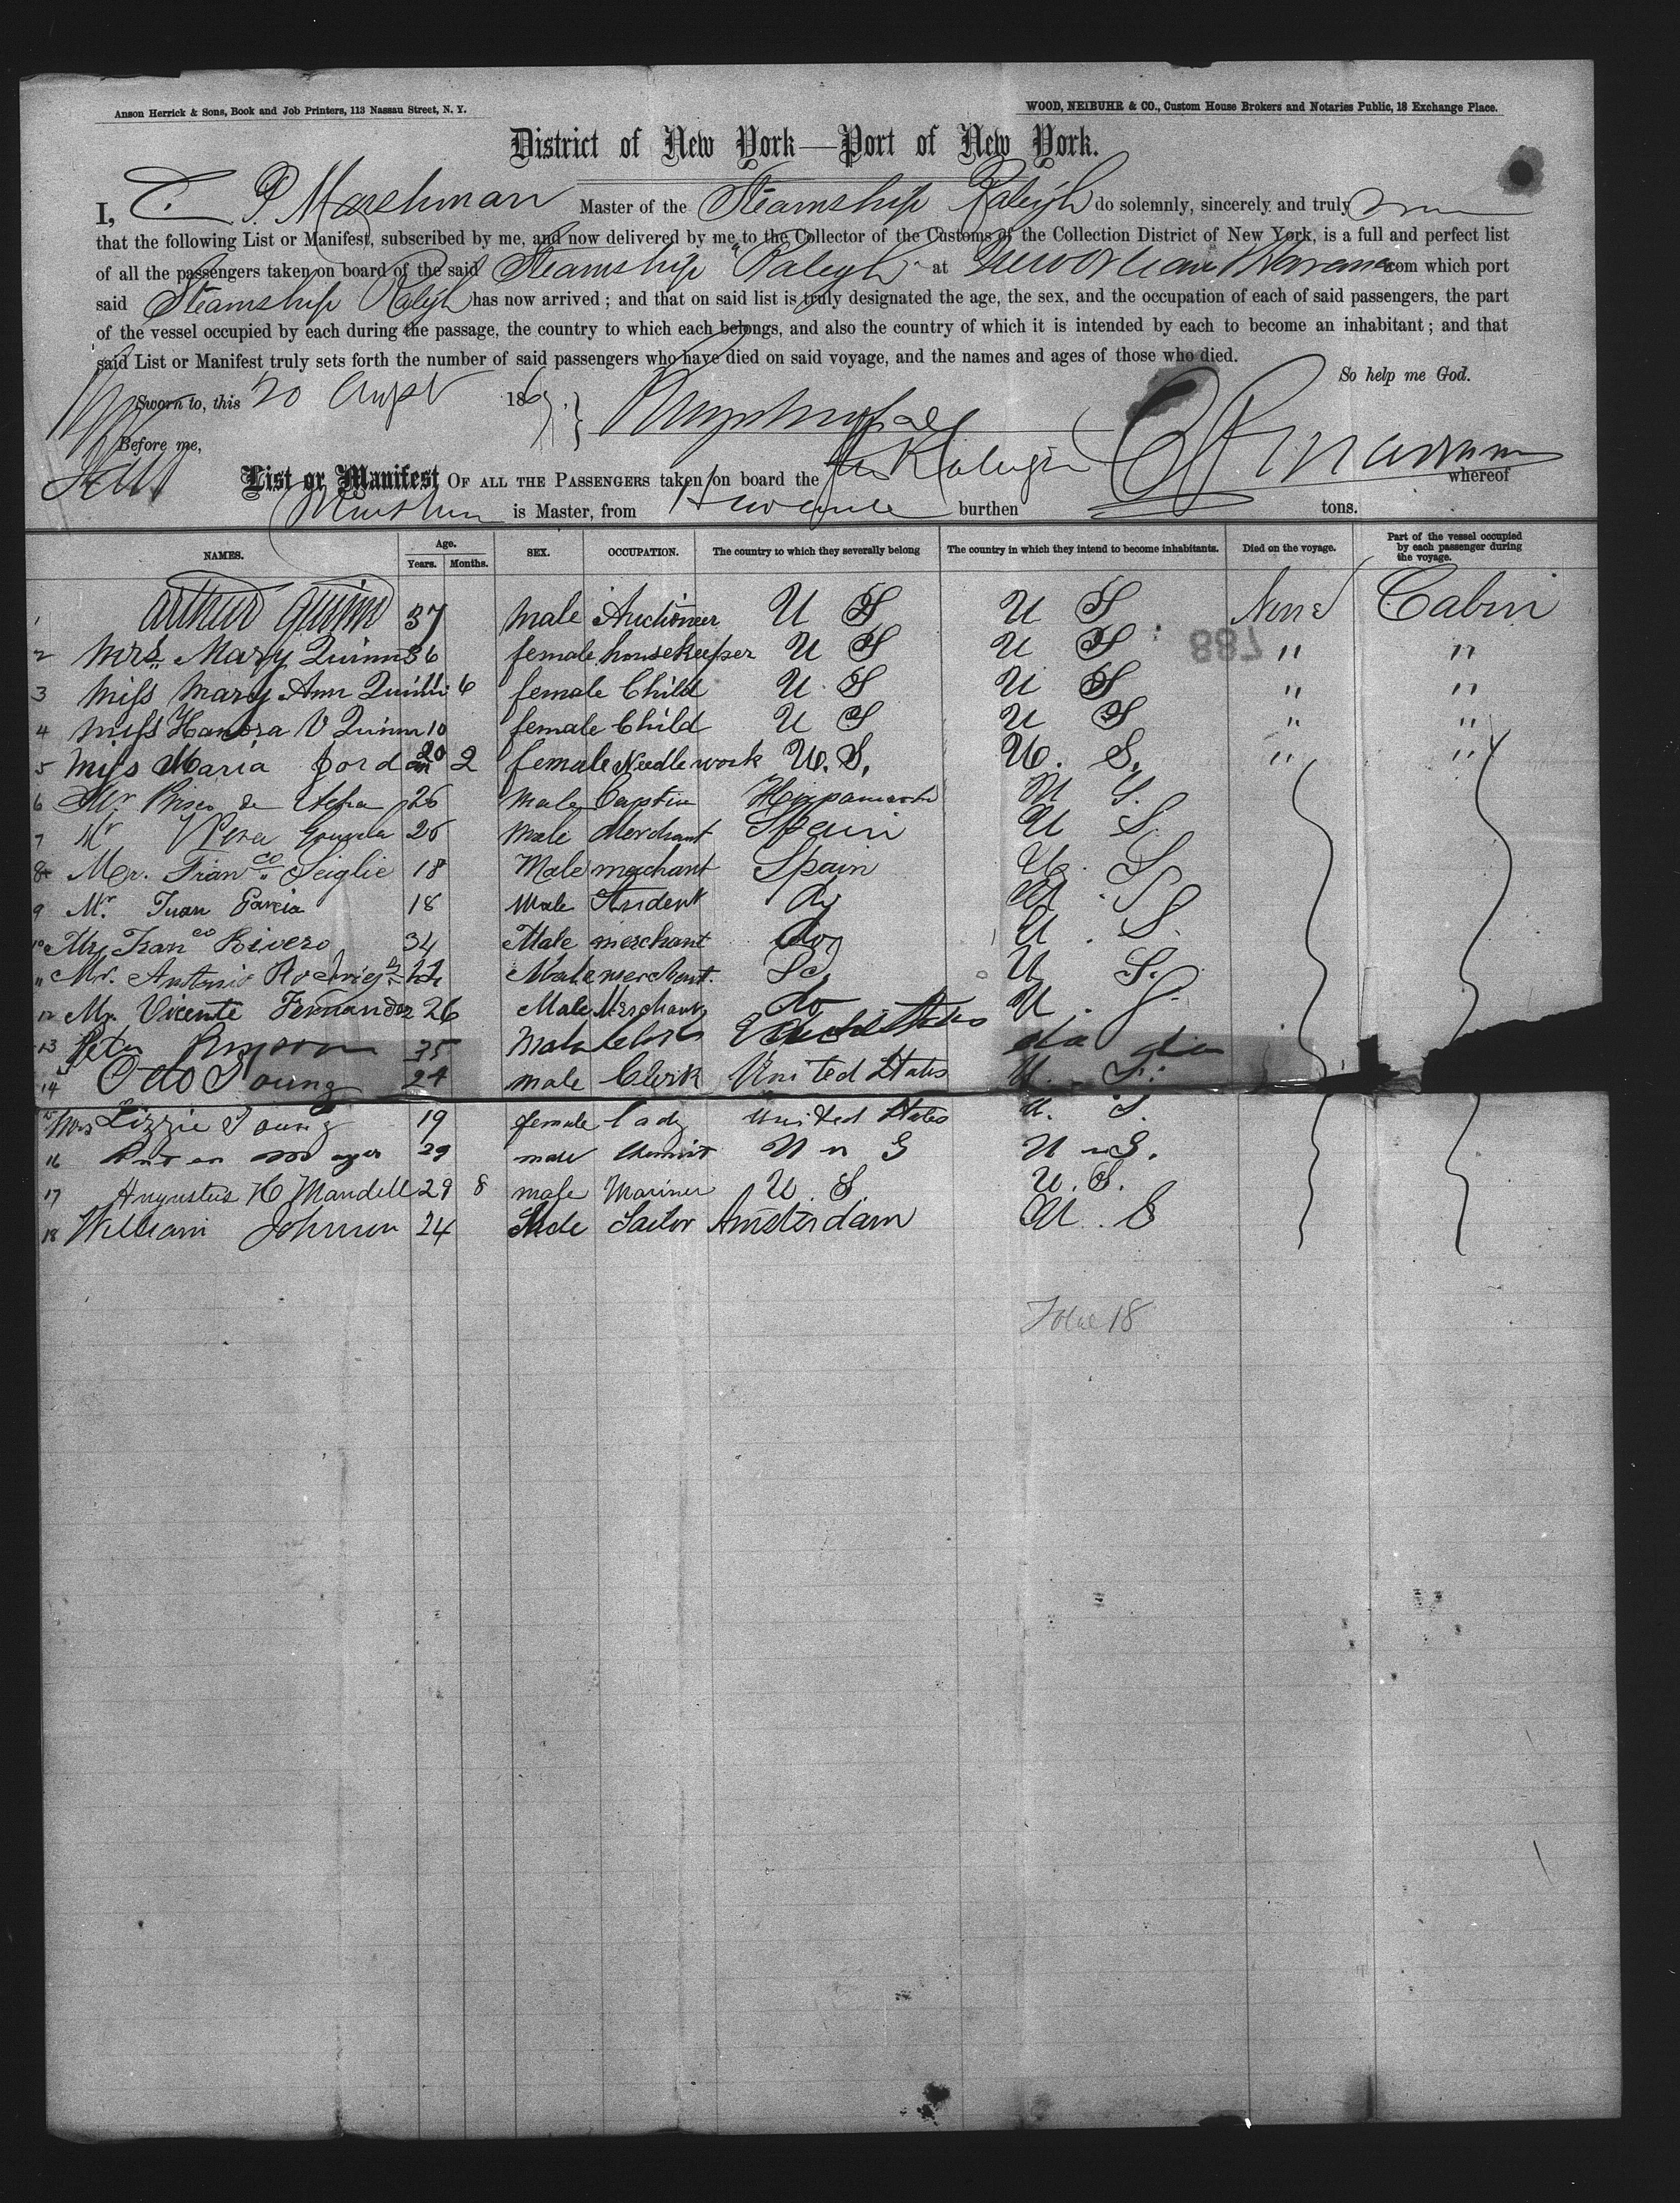 Anson Herrick & Sons, Book and Job Printers, 113 Nassau Street, N. Y.
WOOD, NEIBUHR & CO., Custom House Brokers and Notaries Public, 18 Exchange Place.
District of New York—Port of New York.
I, C. P. Marshman Master of the Steamship Raleigh do solemnly, sincerely and truly
that the following List or Manifest, subscribed by me, and now delivered by me to the Collector of the Customs of the Collection District of New York, is a full and perfect list
of all the passengers taken on board of the said Steamship "Raleigh" at New Orleans & Havana from which port
said Steamship Raleigh has now arrived ; and that on said list is truly designated the age, the sex, and the occupation of each of said passengers, the part
of the vessel occupied by each during the passage, the country to which each belongs, and also the country of which it is intended by each to become an inhabitant ; and that
said List or Manifest truly sets forth the number of said passengers who have died on said voyage, and the names and ages of those who died.
So help me God.
Sworn to, this 20 186
Before me,
List or Manifest OF ALL THE PASSENGERS taken on board the Raleigh whereof
is Master, from burthen tons.
NAMES. Age. Years. Months. SEX. OCCUPATION. The country to which they severally belong The country in which they intend to become inhabitants. Died on the voyage. Part of the vessel occupied by each passenger during the voyage.
1 Arthur Quinn 37 male Auctioneer U S U S None Cabin
2 Mrs. Mary Quinn 36 female housekeeper U S U S " "
3 Miss Mary Ann Quinn 11 6 female Child U S U S " "
887
4 Miss Hanora V Quinn 10 female Child U S U S " "
5 Miss Maria Jordan 20 2 female Needle work U. S. U. S. " "
6 Mr 26 male U S.
7 Mr 26 Male Merchant Spain U S.
8 Mr. Franco. Seiglie 18 Male merchant Spain U. S.
9 Mr. Juan Garcia 18 Male Student do U. S
10 Mr Franco Rivero 34 Male merchant do U. S.
11 Mr. Antonio Rodrigz Male merchant. U S.
12 Mr. Vicente Fernandez 26 Male Merchant do U. S.
13 Peter 35 Male Clerk United States do do
14 Otto Young 24 male Clerk United States U. S.
15 Mrs Lizzie Young 19 female Lady United States U. S.
16 29 male U S U S.
17 Augustus H Mandell 29 8 male Mariner U. S. U. S.
18 William Johnson 24 Male Sailor Amsterdam U. S
Total 18